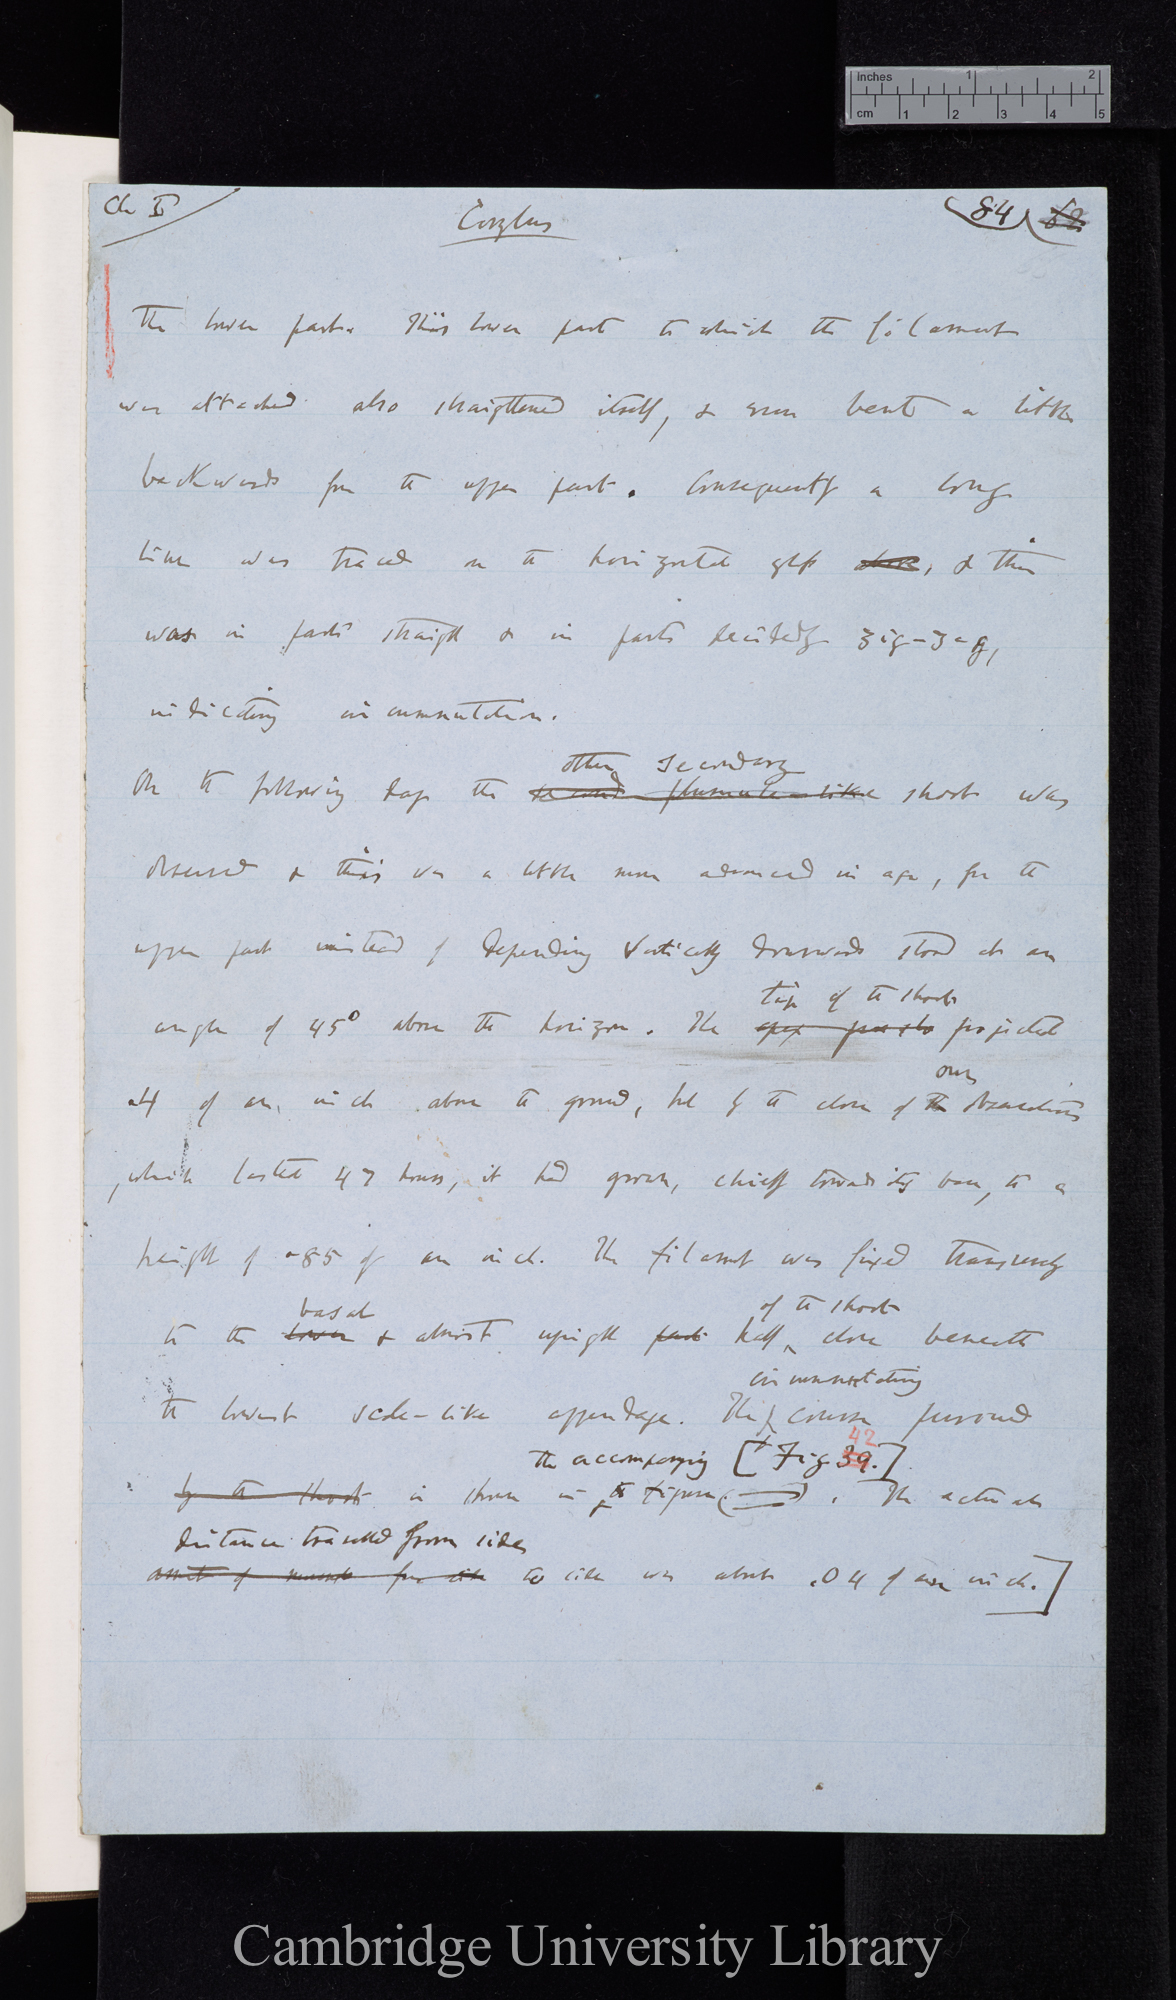 Inches 1 2
cm 1 2 3 4 5
Ch II
Corylus
84 62
the lower part. This lower part to which the filament
was attached also straightened itself, & even bent a little
backwards from the upper part. Consequently a long
line was traced on the horizontal glass above, & this
was in parts straight & in parts decidedly zig-zag,
indicating circumnutation.
other secondary
On the following day the second plumule-like shoot was
observed & this was a little more advanced in age, for the
upper part instead of depending vertically downwards stood at an
tip of the shoot
angle of 45° above the horizon. The apex projected
our
.4 of an inch above the ground, but by the close of the observations
, which lasted 47 hours, it had grown, chiefly towards its base, to a
height of .85 of an inch. The filament was fixed transversely
basal of the shoot
to the lower & almost upright part half, close beneath
circumnutating
the lowest scale-like appendage. The course pursued
42
the accompanying [Fig 39.]
by the shoot is shown in the figure ( ). The actual
distance travelled from side
amount of movement from side to side was about .04 of an inch.]
Cambridge University Library